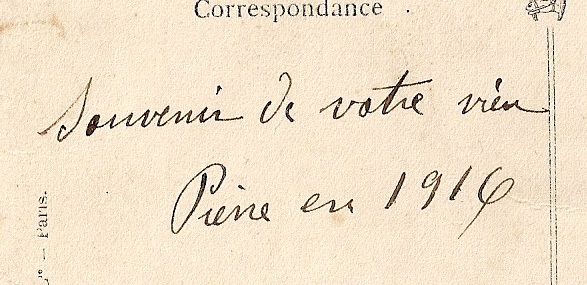 Correspondance
Souvenir de votre vieu
Pierre en 1916
Cie – Paris.